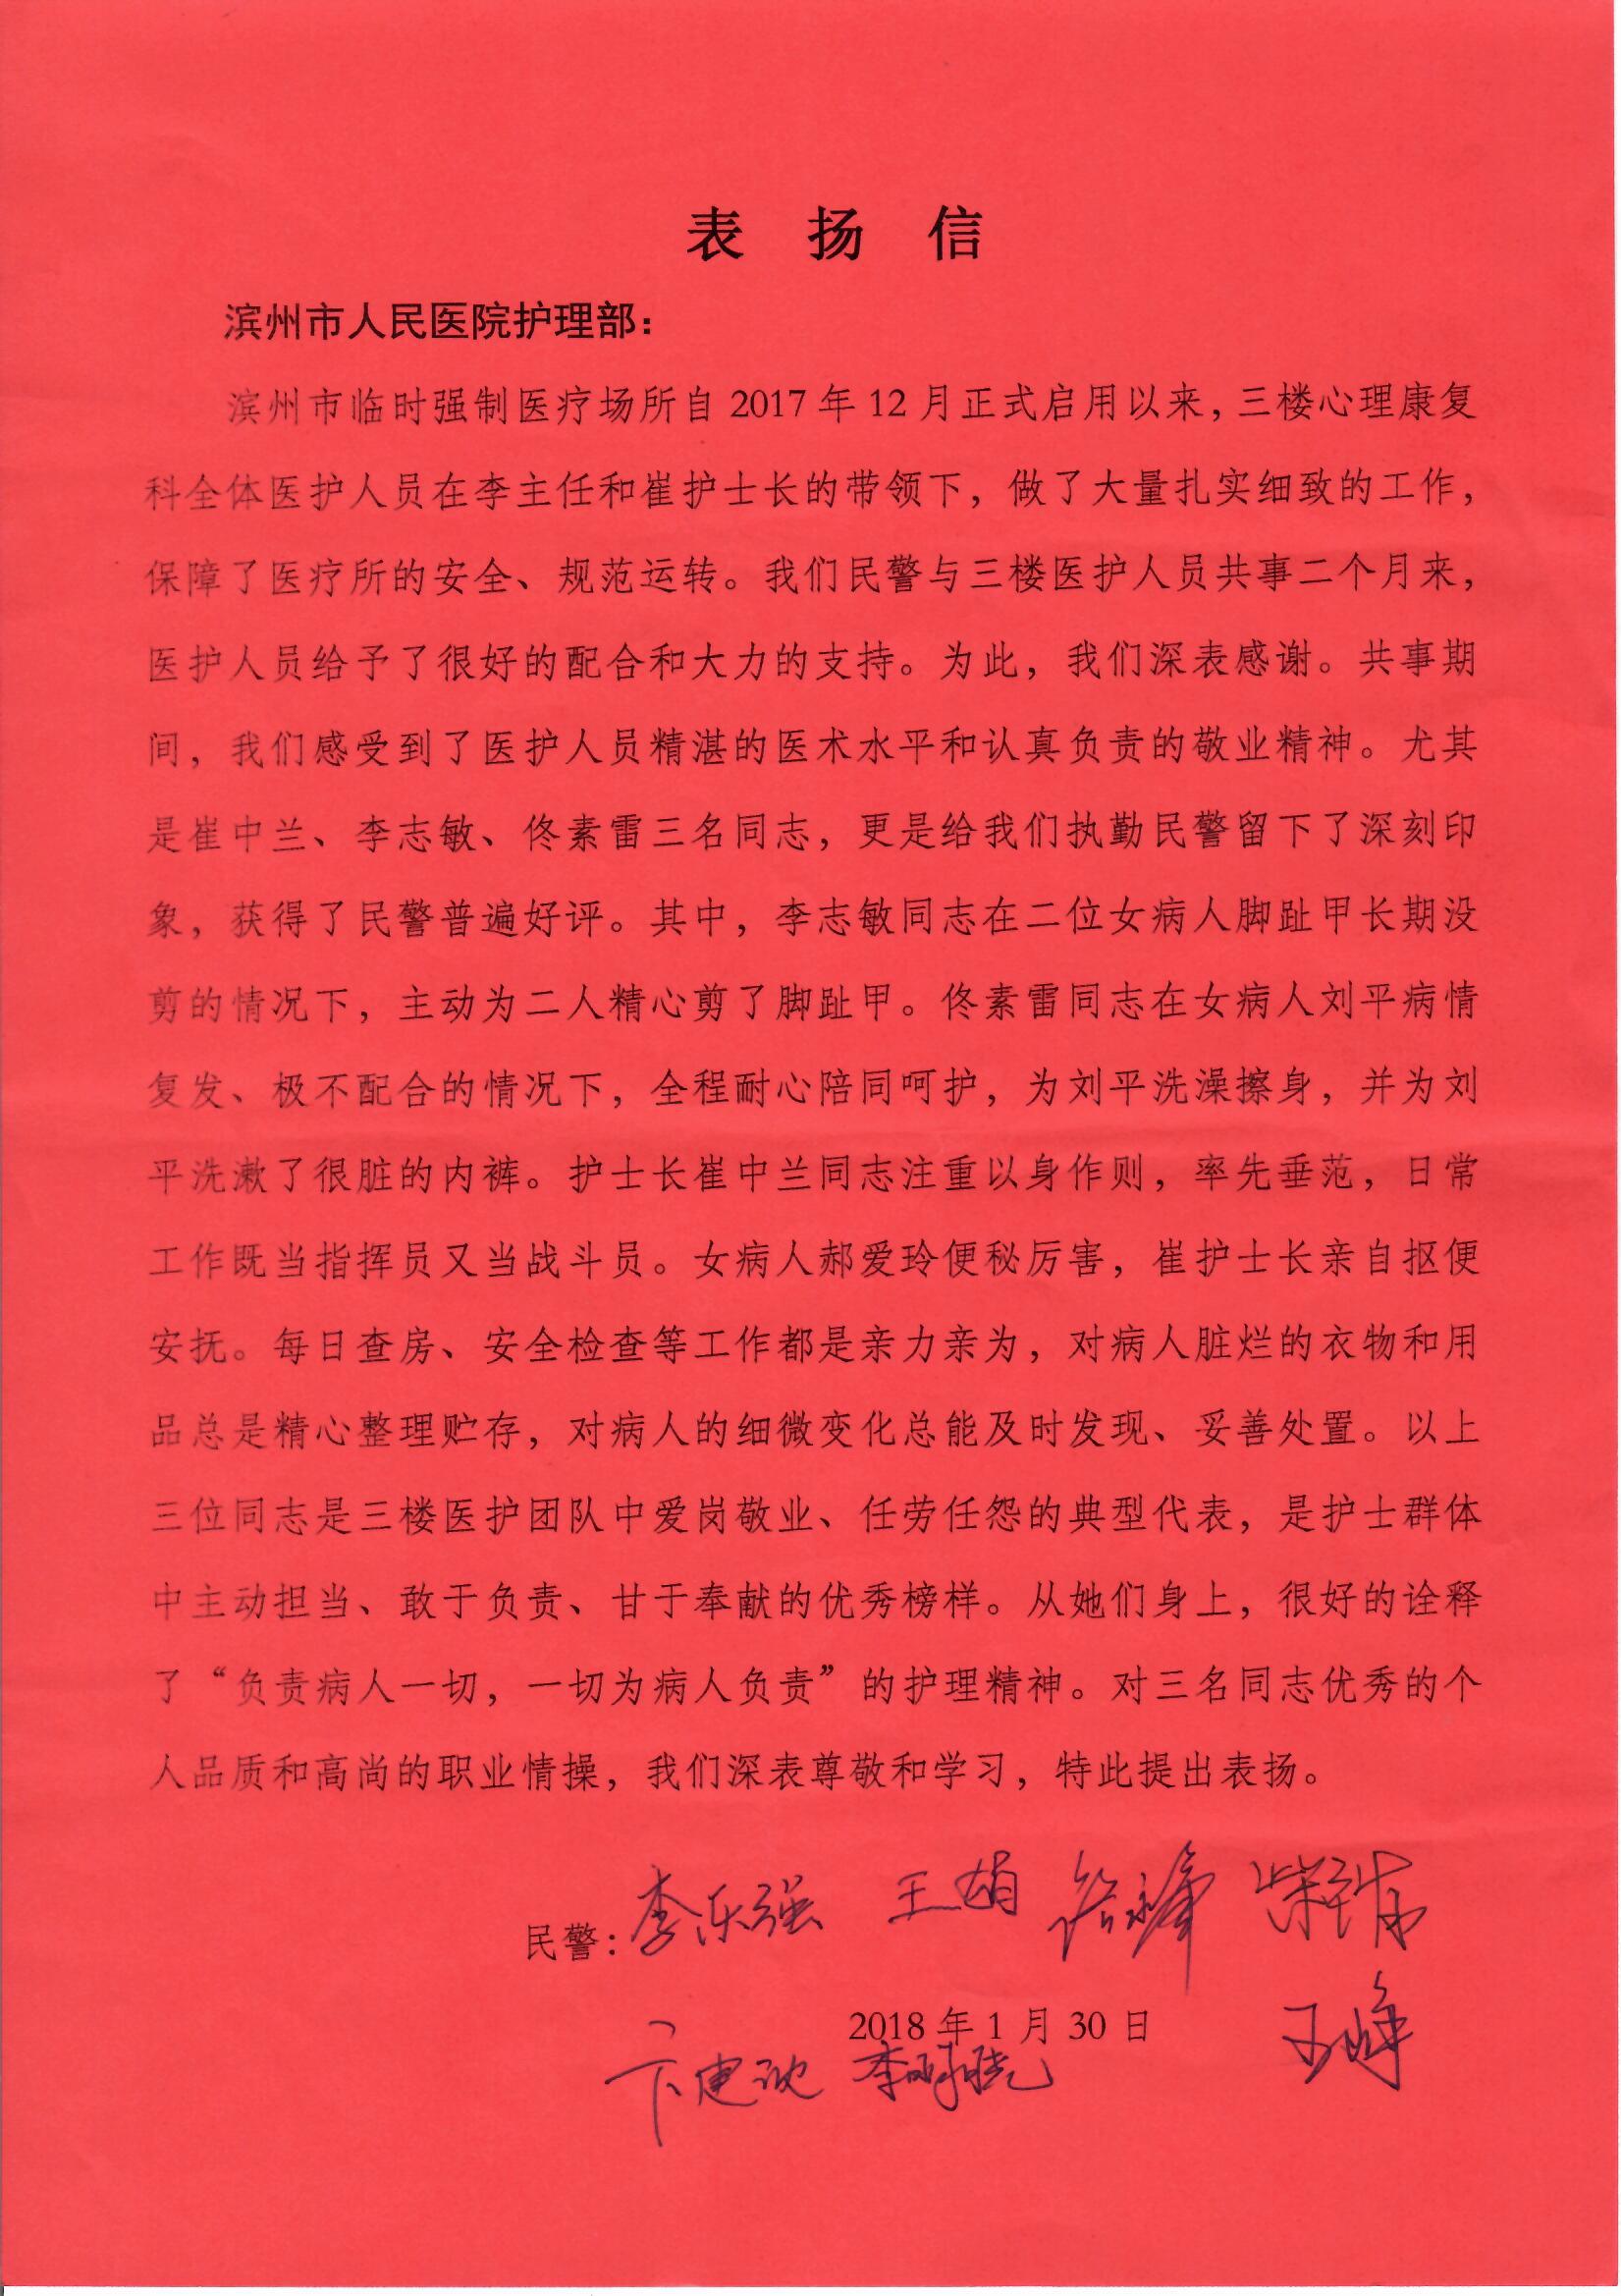 表 扬 信
滨州市人民医院护理部：
滨州市临时强制医疗场所自 2017 年 12 月正式启用以来，三楼心理康复
科全体医护人员在李主任和崔护士长的带领下，做了大量扎实细致的工作，
保障了医疗所的安全、规范运转。我们民警与三楼医护人员共事二个月来，
医护人员给予了很好的配合和大力的支持。为此，我们深表感谢。共事期
间，我们感受到了医护人员精湛的医术水平和认真负责的敬业精神。尤其
是崔中兰、李志敏、佟素雷三名同志，更是给我们执勤民警留下了深刻印
象，获得了民警普遍好评。其中，李志敏同志在二位女病人脚趾甲长期没
剪的情况下，主动为二人精心剪了脚趾甲。佟素雷同志在女病人刘平病情
复发、极不配合的情况下，全程耐心陪同呵护，为刘平洗澡擦身，并为刘
平洗漱了很脏的内裤。护士长崔中兰同志注重以身作则，率先垂范，日常
工作既当指挥员又当战斗员。女病人郝爱玲便秘厉害，崔护士长亲自抠便
安抚。每日查房、安全检查等工作都是亲力亲为，对病人脏烂的衣物和用
品总是精心整理贮存，对病人的细微变化总能及时发现、妥善处置。以上
三位同志是三楼医护团队中爱岗敬业、任劳任怨的典型代表，是护士群体
中主动担当、敢于负责、甘于奉献的优秀榜样。从她们身上，很好的诠释
了“负责病人一切，一切为病人负责”的护理精神。对三名同志优秀的个
人品质和高尚的职业情操，我们深表尊敬和学习，特此提出表扬。
民警：李乐强 王娟
2018 年 1 月 30 日 王峰